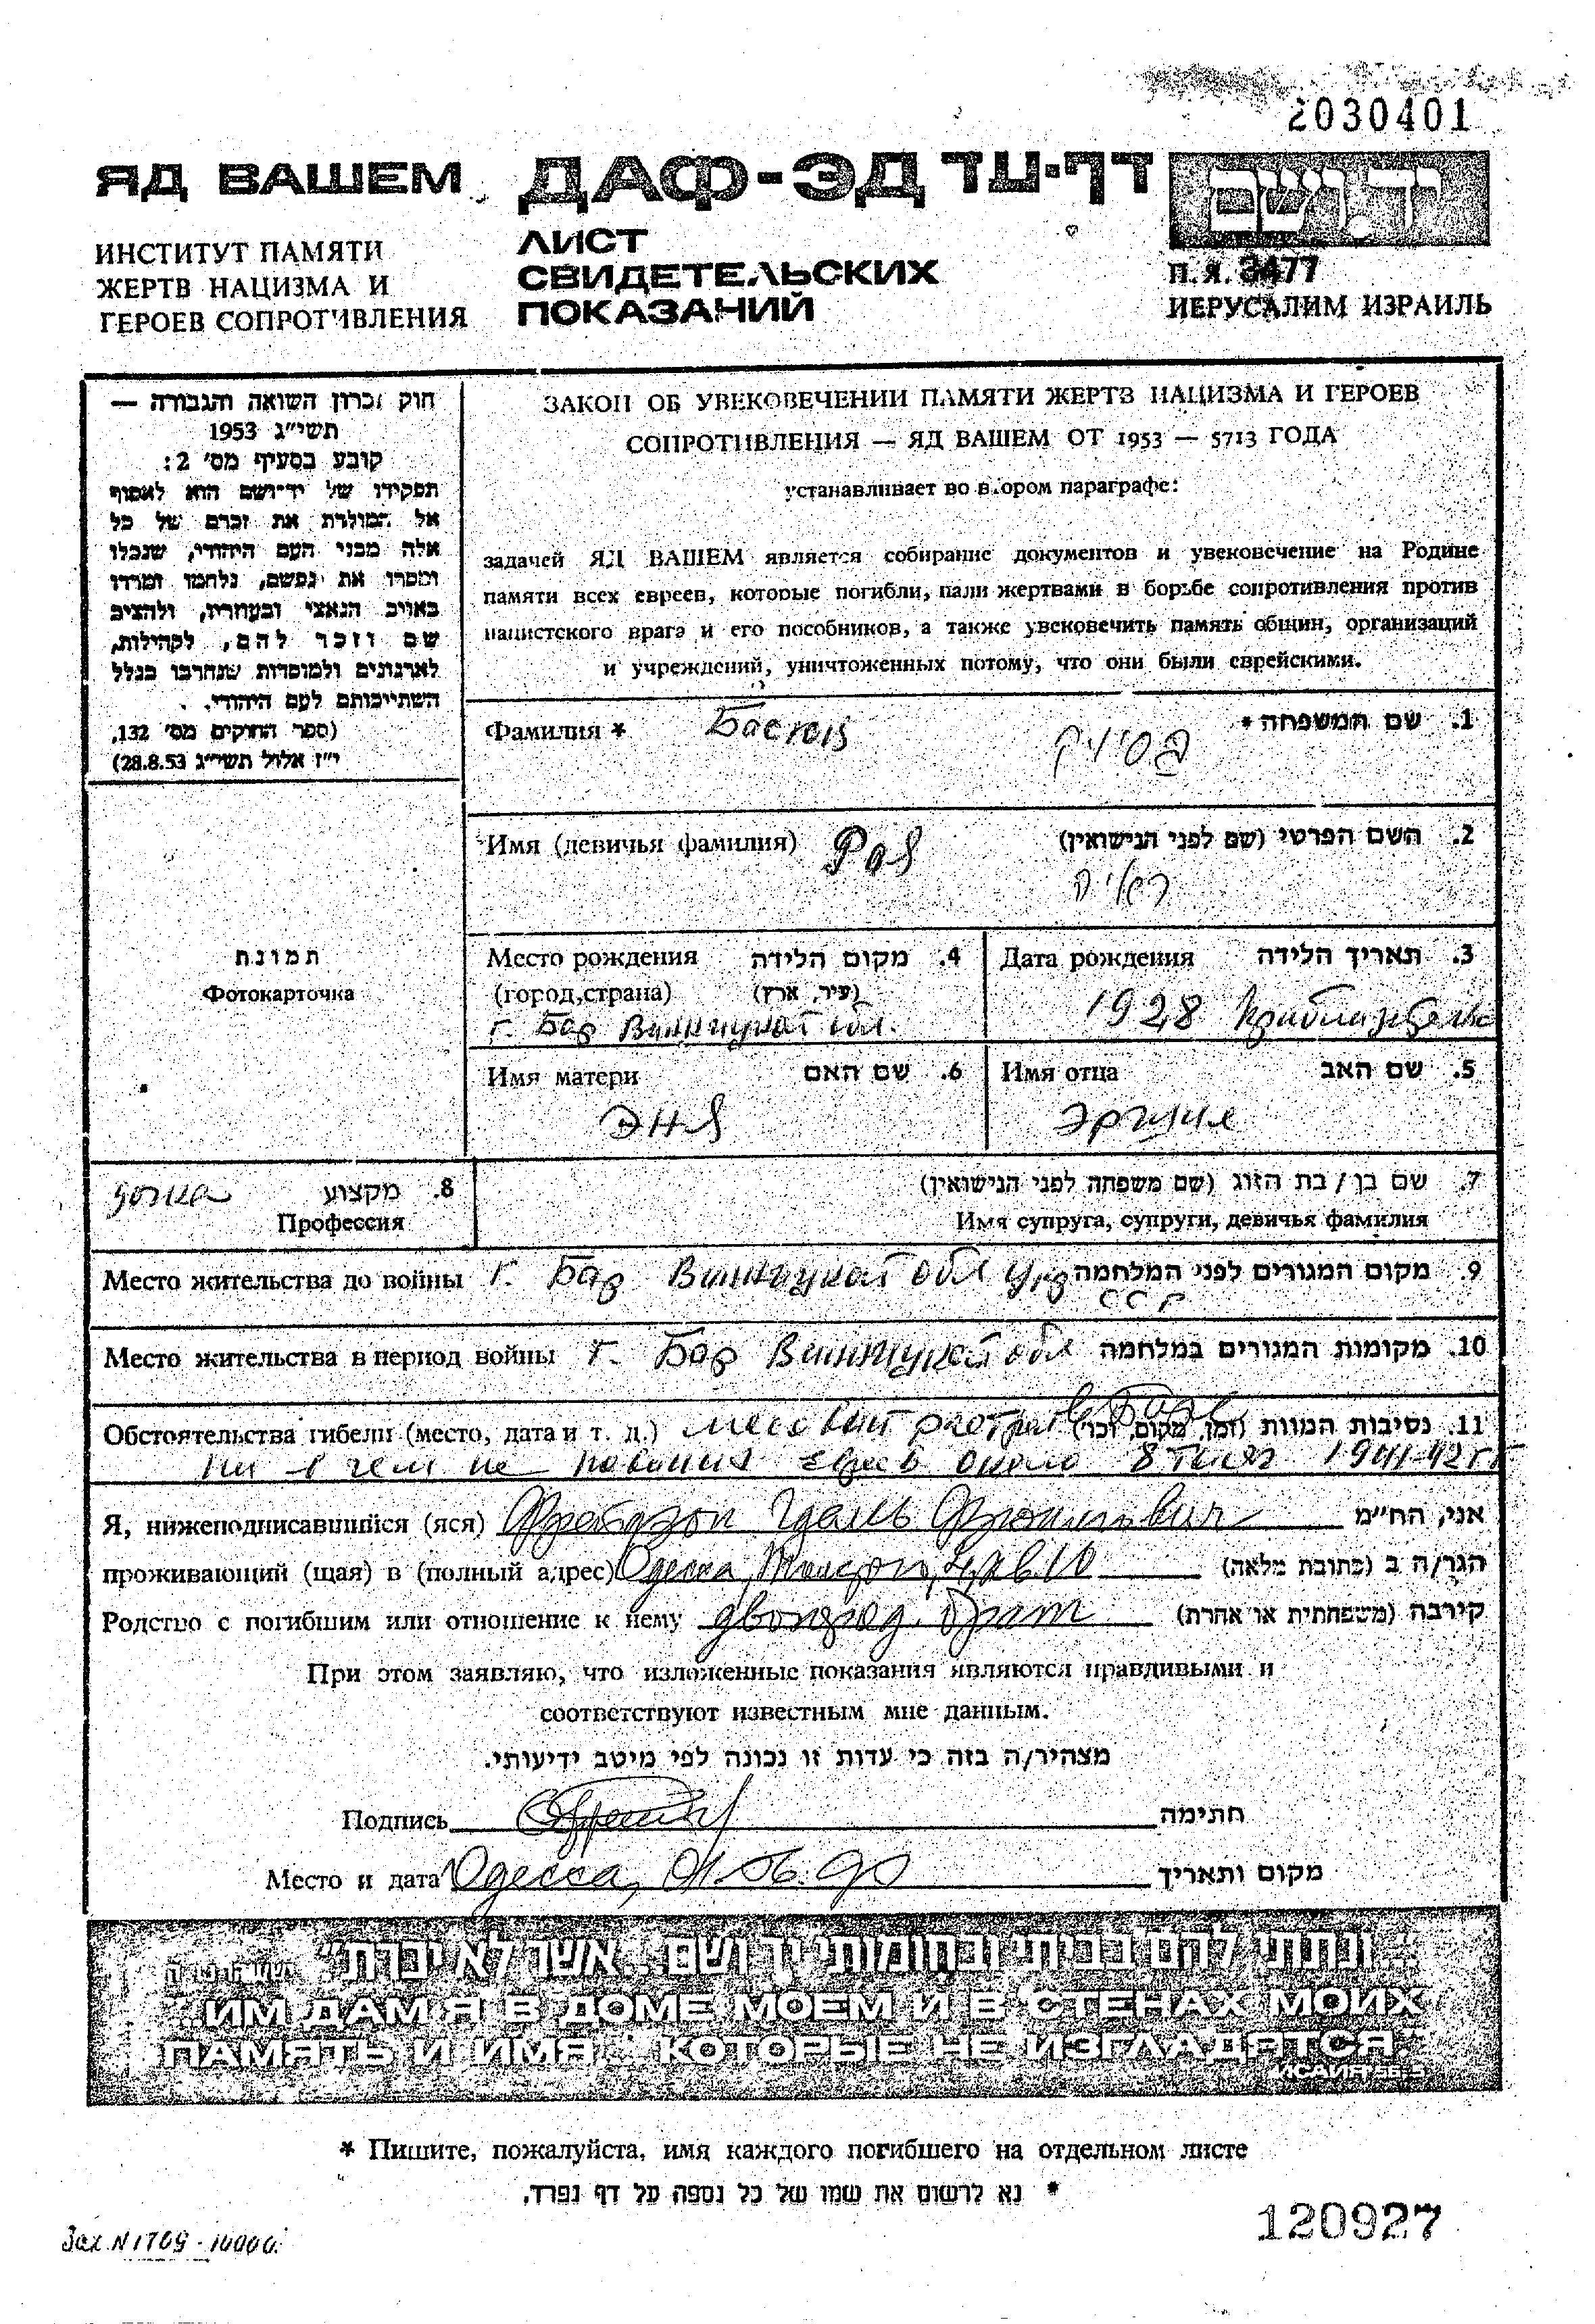 2030401
ЯД ВАШЕМ ДАФ-ЭД דף-עד יד ושם
ИНСТИТУТ ПАМЯТИ
ЖЕРТВ НАЦИЗМА И
ГЕРОЕВ СОПРОТИВЛЕНИЯ
ЛИСТ
СВИДЕТЕЛЬСКИХ
ПОКАЗАНИЙ
П.Я. 3477
ИЕРУСАЛИМ ИЗРАИЛЬ
חוק זכרון השואה והגבורה —
תשי״ג 1953
קובע בסעיף מס׳ 2:
תפקידו של יד־ושם הוא לאסוף
אל המולדת את זכרם של כל
אלה מבני העם היהודי, שנפלו
ומסרו את נפשם, נלחמו ומרדו
באויב הנאצי ובעוזריו, ולהציב
שם וזכר להם, לקהילות,
לארגונים ולמוסדות שנחרבו בגלל
השתייכותם לעם היהודי.
(ספר החוקים מס׳ 132,
י״ז אלול תשי״ג 28.8.53)
ЗАКОН ОБ УВЕКОВЕЧЕНИИ ПАМЯТИ ЖЕРТВ НАЦИЗМА И ГЕРОЕВ
СОПРОТИВЛЕНИЯ — ЯД ВАШЕМ ОТ 1953 — 5713 ГОДА
устанавливает во втором параграфе:
задачей ЯД ВАШЕМ является собирание документов и увековечение на Родине
памяти всех евреев, которые погибли, пали жертвами в борьбе сопротивления против
нацистского врага и его пособников, а также увековечить память общин, организаций
и учреждений, уничтоженных потому, что они были еврейскими.
Фамилия * 1. שם המשפחה *
Имя (девичья фамилия) Рая 2. השם הפרטי (שם לפני הנישואין)
ראיה
תמונת
Фотокарточка
Место рождения 4. מקום הלידה
(город, страна) (עיר, ארץ)
г. Бар Винницкой обл.
Дата рождения 3. תאריך הלידה
1928 приблизительно
Имя матери 6. שם האם
Эня
Имя отца 5. שם האב
8. מקצוע
Профессия
7. שם בן / בת הזוג (שם משפחה לפני הנישואין)
Имя супруга, супруги, девичья фамилия
Место жительства до войны г. Бар Винницкой обл Укр 9. מקום המגורים לפני המלחמה
ССР
Место жительства в период войны г. Бар Винницкой обл 10. מקומות המגורים במלחמה
Обстоятельства гибели (место, дата и т. д.) массовый расстрел в Баре 11. נסיבות המוות (זמן, מקום, וכו׳)
ни в чем не повинных евреев около 8 тысяч 1941-42 гг
Я, нижеподписавшийся (яся) אני, הח״מ
проживающий (щая) в (полный адрес) Одесса, הגר/ה ב (כתובת מלאה)
Родство с погибшим или отношение к нему двоюрод. брат קירבה (משפחתית או אחרת)
При этом заявляю, что изложенные показания являются правдивыми и
соответствуют известным мне данным.
מצהיר/ה בזה כי עדות זו נכונה לפי מיטב ידיעותי.
Подпись חתימה
Место и дата Одесса, 01.06.90 מקום ותאריך
״ונתתי להם בביתי ובחומותי יד ושם... אשר לא יכרת״
"ИМ ДАМ Я В ДОМЕ МОЕМ И В СТЕНАХ МОИХ
ПАМЯТЬ И ИМЯ... КОТОРЫЕ НЕ ИЗГЛАДЯТСЯ"
* Пишите, пожалуйста, имя каждого погибшего на отдельном листе
* נא לרשום את שמו של כל נספה על דף נפרד.
Зак. N 1709 - 10000.
120927